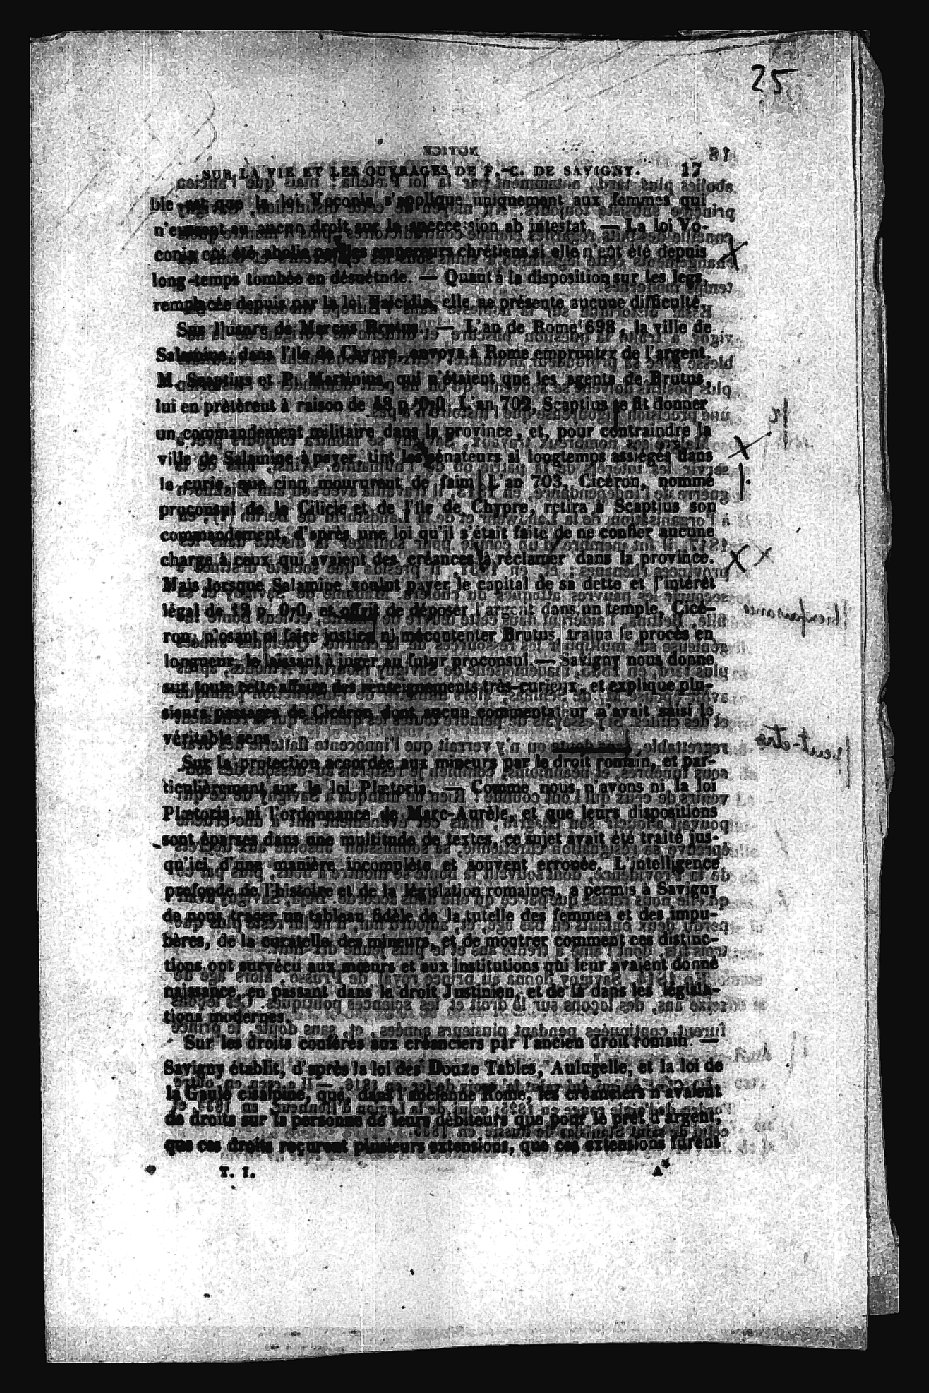 25
SUR LA VIE ET LES OUVRAGES DE F.-C. DE SAVIGNY. 17
ble est que la loi Voconia s'applique uniquement aux femmes qui
n'eussent eu aucun droit sur la succession ab intestat. — La loi Vo-
conia eût été abolie par les empereurs chrétiens si elle n'eût été depuis
long-temps tombée en désuétude. — Quant à la disposition sur les legs,
remplacée depuis par la loi Falcidia, elle ne présente aucune difficulté.
Sur l'usure de Marcus Brutus. — L'an de Rome 698, la ville de
Salamine, dans l'île de Chypre, envoya à Rome emprunter de l'argent.
M. Scaptius et P. Matinius, qui n'étaient que les agents de Brutus,
lui en prêtèrent à raison de 48 p. 0/0. L'an 702, Scaptius se fit donner
un commandement militaire dans la province, et, pour contraindre la
ville de Salamine à payer, tint les sénateurs si longtemps assiégés dans
la curie, que cinq moururent de faim. L'an 703, Cicéron, nommé
proconsul de la Cilicie et de l'île de Chypre, retira à Scaptius son
commandement, d'après une loi qu'il s'était faite de ne confier aucune
charge à ceux qui avaient des créances à réclamer dans la province.
Mais lorsque Salamine voulut payer le capital de sa dette et l'intérêt
légal de 12 p. 0/0, et offrit de déposer l'argent dans un temple, Cicé-
ron, n'osant ni faire justice ni mécontenter Brutus, traîna le procès en
longueur, le laissant à juger au futur proconsul. — Savigny nous donne
sur toute cette affaire des renseignements très-curieux, et explique plu-
sieurs passages de Cicéron dont aucun commentateur n'avait saisi le
véritable sens.
Sur la protection accordée aux mineurs par le droit romain, et par-
ticulièrement sur la loi Plætoria. — Comme nous n'avons ni la loi
Plætoria, ni l'ordonnance de Marc-Aurèle, et que leurs dispositions
sont éparses dans une multitude de textes, ce sujet avait été traité jus-
qu'ici d'une manière incomplète et souvent erronée. L'intelligence
profonde de l'histoire et de la législation romaines, a permis à Savigny
de nous tracer un tableau fidèle de la tutelle des femmes et des impu-
bères, de la curatelle des mineurs, et de montrer comment ces distinc-
tions ont survécu aux mœurs et aux institutions qui leur avaient donné
naissance, en passant dans le droit Justinien, et de là dans les législa-
tions modernes.
Sur les droits conférés aux créanciers par l'ancien droit romain. —
Savigny établit, d'après la loi des Douze Tables, Aulugelle, et la loi de
la Gaule cisalpine, que, dans l'ancienne Rome, les créanciers n'avaient
de droits sur la personne de leurs débiteurs que pour le prêt d'argent,
que ces droits reçurent plusieurs extensions, que ces extensions furent
T. I. A*